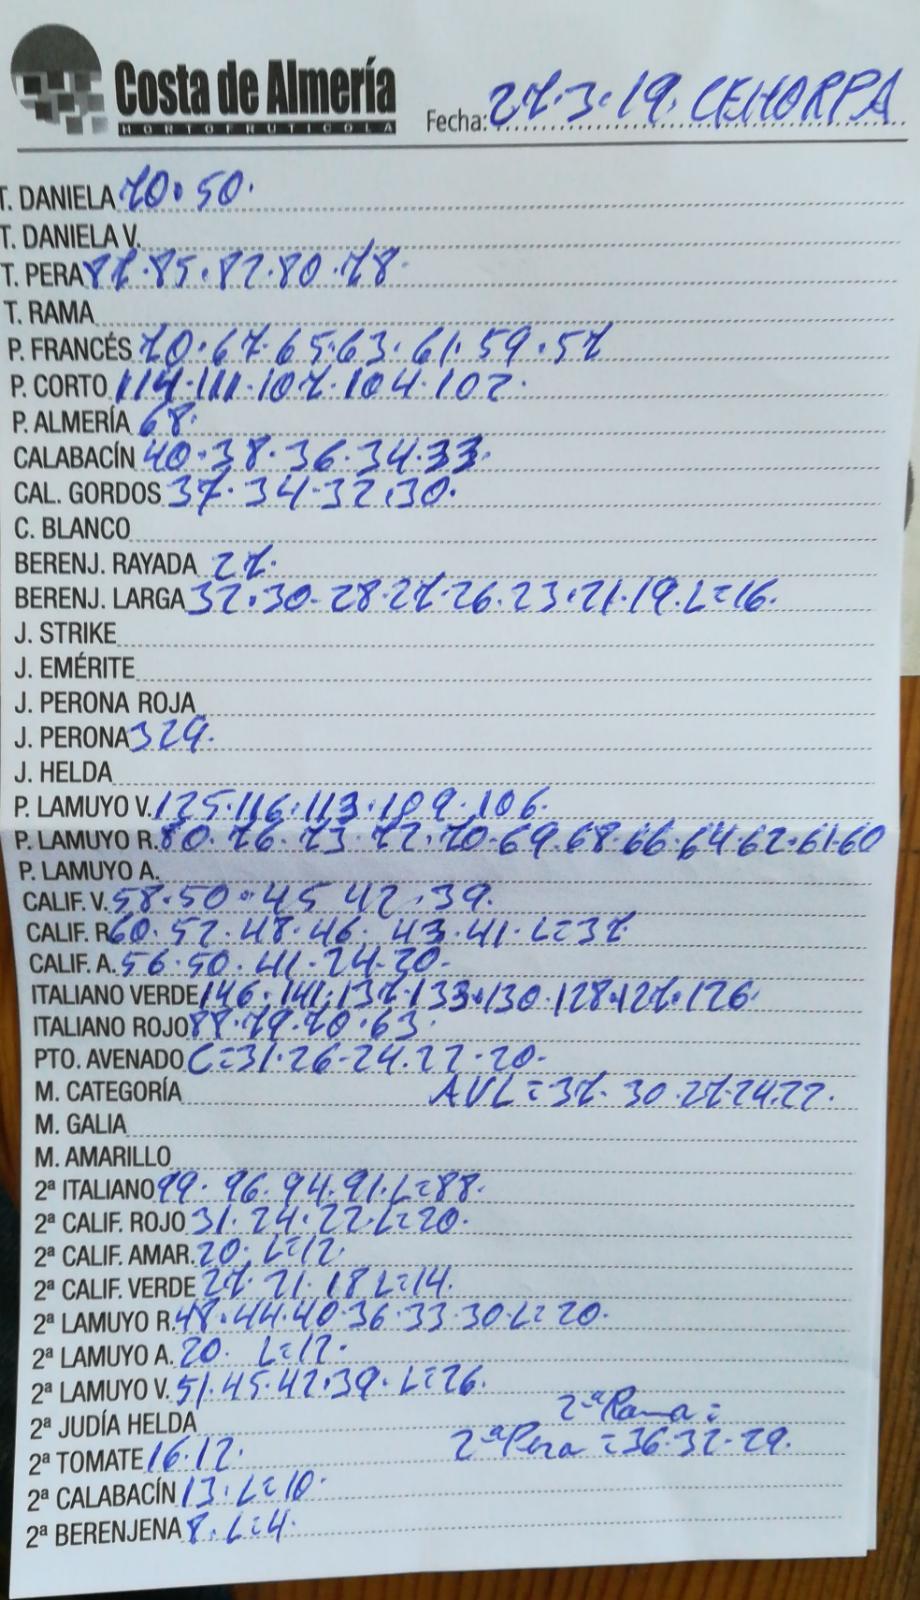 Costa de Almería
HORTOFRUTICOLA
Fecha: 27.3.19. CEHORPA
T. DANIELA 70.50.
T. DANIELA V.
T. PERA 87.85.82.80.78.
T. RAMA
P. FRANCÉS 70.67.65.63.61.59.57
P. CORTO 114.111.107.104.102.
P. ALMERÍA 68.
CALABACÍN 40.38.36.34.33.
CAL. GORDOS 37.34.32.30.
C. BLANCO
BERENJ. RAYADA 27.
BERENJ. LARGA 32.30.28.27.26.23.21.19.L=16.
J. STRIKE
J. EMÉRITE
J. PERONA ROJA
J. PERONA 329.
J. HELDA
P. LAMUYO V. 125.116.113.109.106.
P. LAMUYO R. 80.76.73.72.70.69.68.66.64.62.61.60
P. LAMUYO A.
CALIF. V. 58.50.45 42.39.
CALIF. R 60.52.48.46. 43.41.L=37
CALIF. A. 56.50.41.24.20.
ITALIANO VERDE 146.141.137.133.130.128.127.126.
ITALIANO ROJO 88.79.70.63.
PTO. AVENADO C=31.26.24.22.20.
M. CATEGORÍA AVL=37.30.27.24.22.
M. GALIA
M. AMARILLO
2ª ITALIANO 99.96.94.91.L=88.
2ª CALIF. ROJO 31.24.22.L=20.
2ª CALIF. AMAR. 20. L=12.
2ª CALIF. VERDE 27.21.18 L=14.
2ª LAMUYO R. 48.44.40.36.33.30.L=20.
2ª LAMUYO A. 20. L=12.
2ª LAMUYO V. 51.45.42.39.L=26.
2ª JUDÍA HELDA 2ª Rama =
2ª TOMATE 16.12. 2ª Pera = 36.32.29.
2ª CALABACÍN 13.L=10.
2ª BERENJENA 8.L=4.